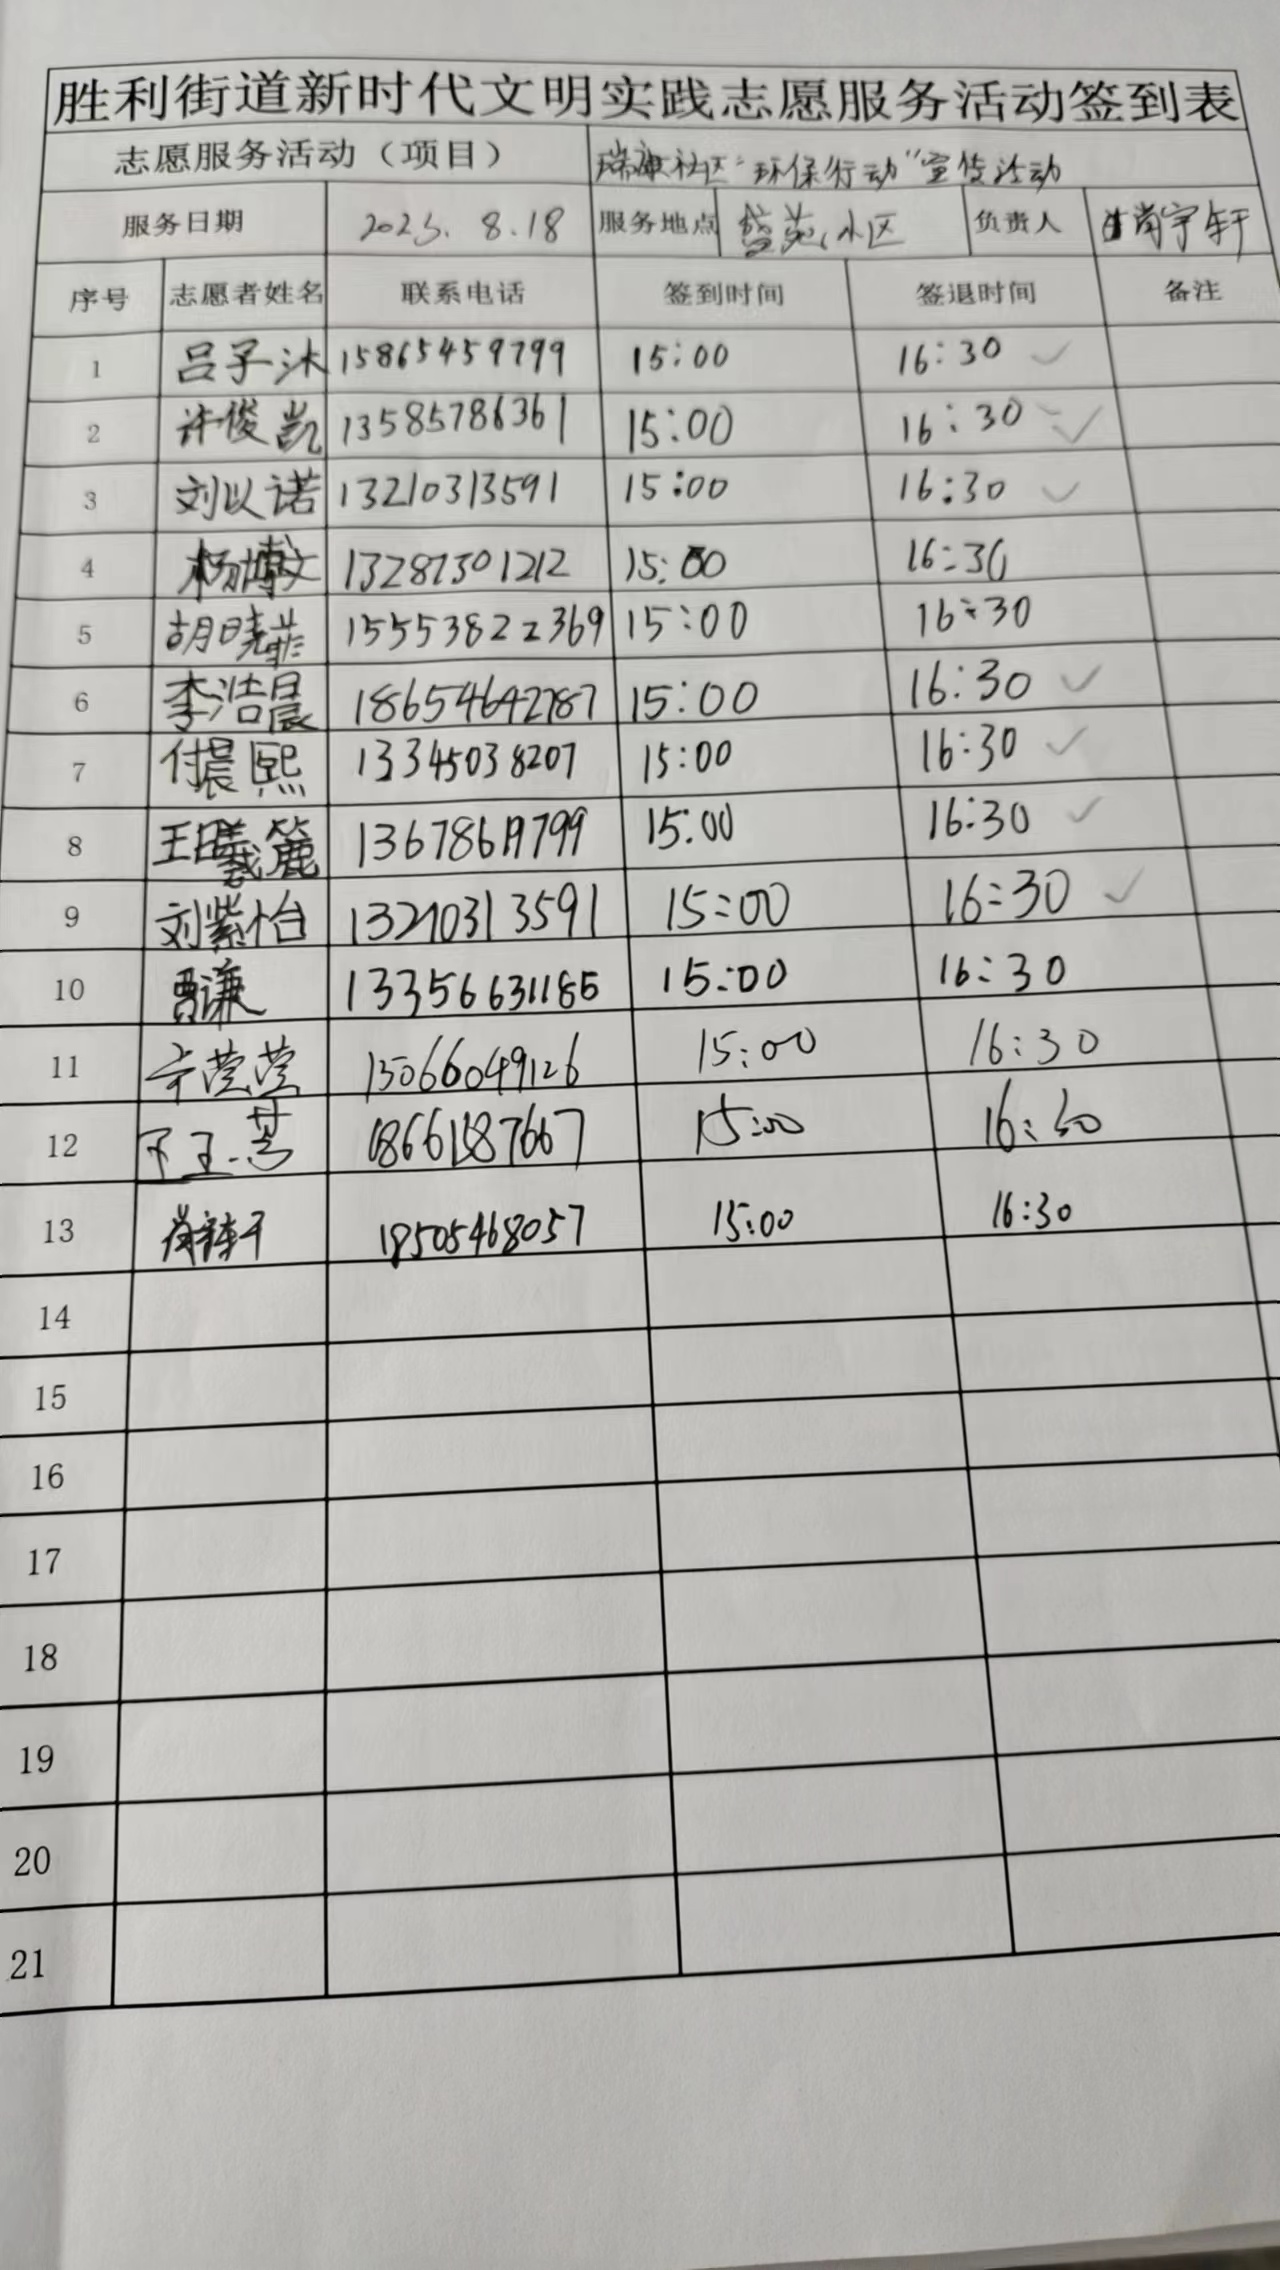 胜利街道新时代文明实践志愿服务活动签到表
志愿服务活动（项目） 瑞康社区“环保行动”宣传活动
服务日期 2023.8.18 服务地点 盛苑小区 负责人 尚宇轩
序号 志愿者姓名 联系电话 签到时间 签退时间 备注
1 吕子沐 15865459799 15:00 16:30
2 许俊凯 13585786361 15:00 16:30
3 刘以诺 13210313591 15:00 16:30
4 杨博文 13287301212 15:00 16:30
5 胡晓菲 15553822369 15:00 16:30
6 李浩晨 18654642787 15:00 16:30
7 付晨熙 13345038207 15:00 16:30
8 王曦麓 15:00 16:30
9 刘紫怡 13210313591 15:00 16:30
10 曹谦 13356631185 15:00 16:30
11 莹莹 15066049126 15:00 16:30
12 15:00 16:30
13 18505468057 15:00 16:30
14
15
16
17
18
19
20
21